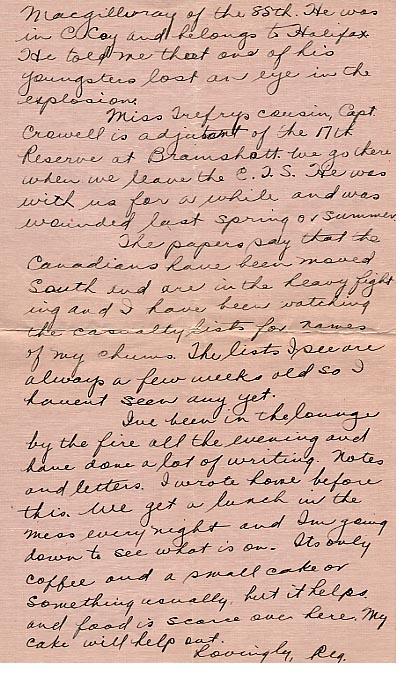 Macgillivray of the 85th. He was
in C Coy and belongs to Halifax.
He told me that one of his
youngsters lost an eye in the
explosion.
Miss Trefrys cousin, Capt.
Crowell is adjutant of the 17th
Reserve at Bramshott. We go there
when we leave the C.T.S. He was
with us for a while and was
wounded last spring or summer.
The papers say that the
Canadians have been moved
South and are in the heavy fight
ing and I have been watching
the casualty lists for names
of my chums. The lists I see are
always a few weeks old so I
havent seen any yet.
Ive been in the lounge
by the fire all the evening and
have done a lot of writing. Notes
and letters. I wrote home before
this. We get a lunch in the
mess every night and Im going
down to see what is on. Its only
coffee and a small cake or
something usually, but it helps,
and food is scarce over here. My
cake will help out.
Lovingly, Reg.